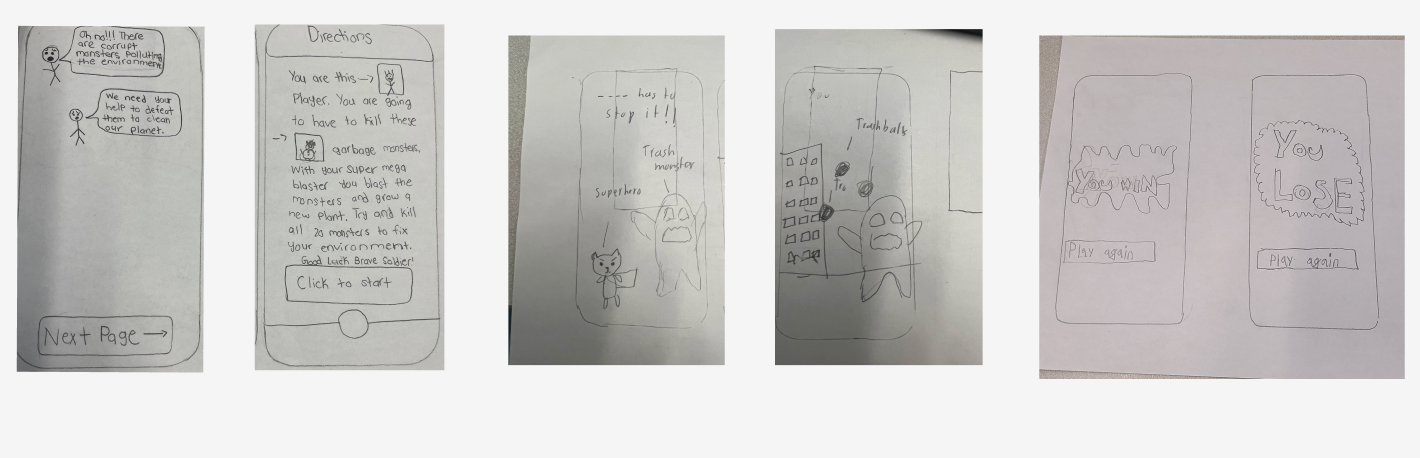 Oh no!!! There
are corrupt
monsters polluting
the environment.
We need your
help to defeat
them to clean
our planet.
Next Page →
Directions
You are this →
Player. You are going
to have to kill these
→ garbage monsters.
With your super mega
blaster you blast the
monsters and grow a
new plant. Try and kill
all 20 monsters to fix
your environment.
Good Luck Brave Soldier!
Click to start
---- has to
stop it!!
Trash
monster
Superhero
Trashballs
You WIN
Play again
You
LOSE
Play again